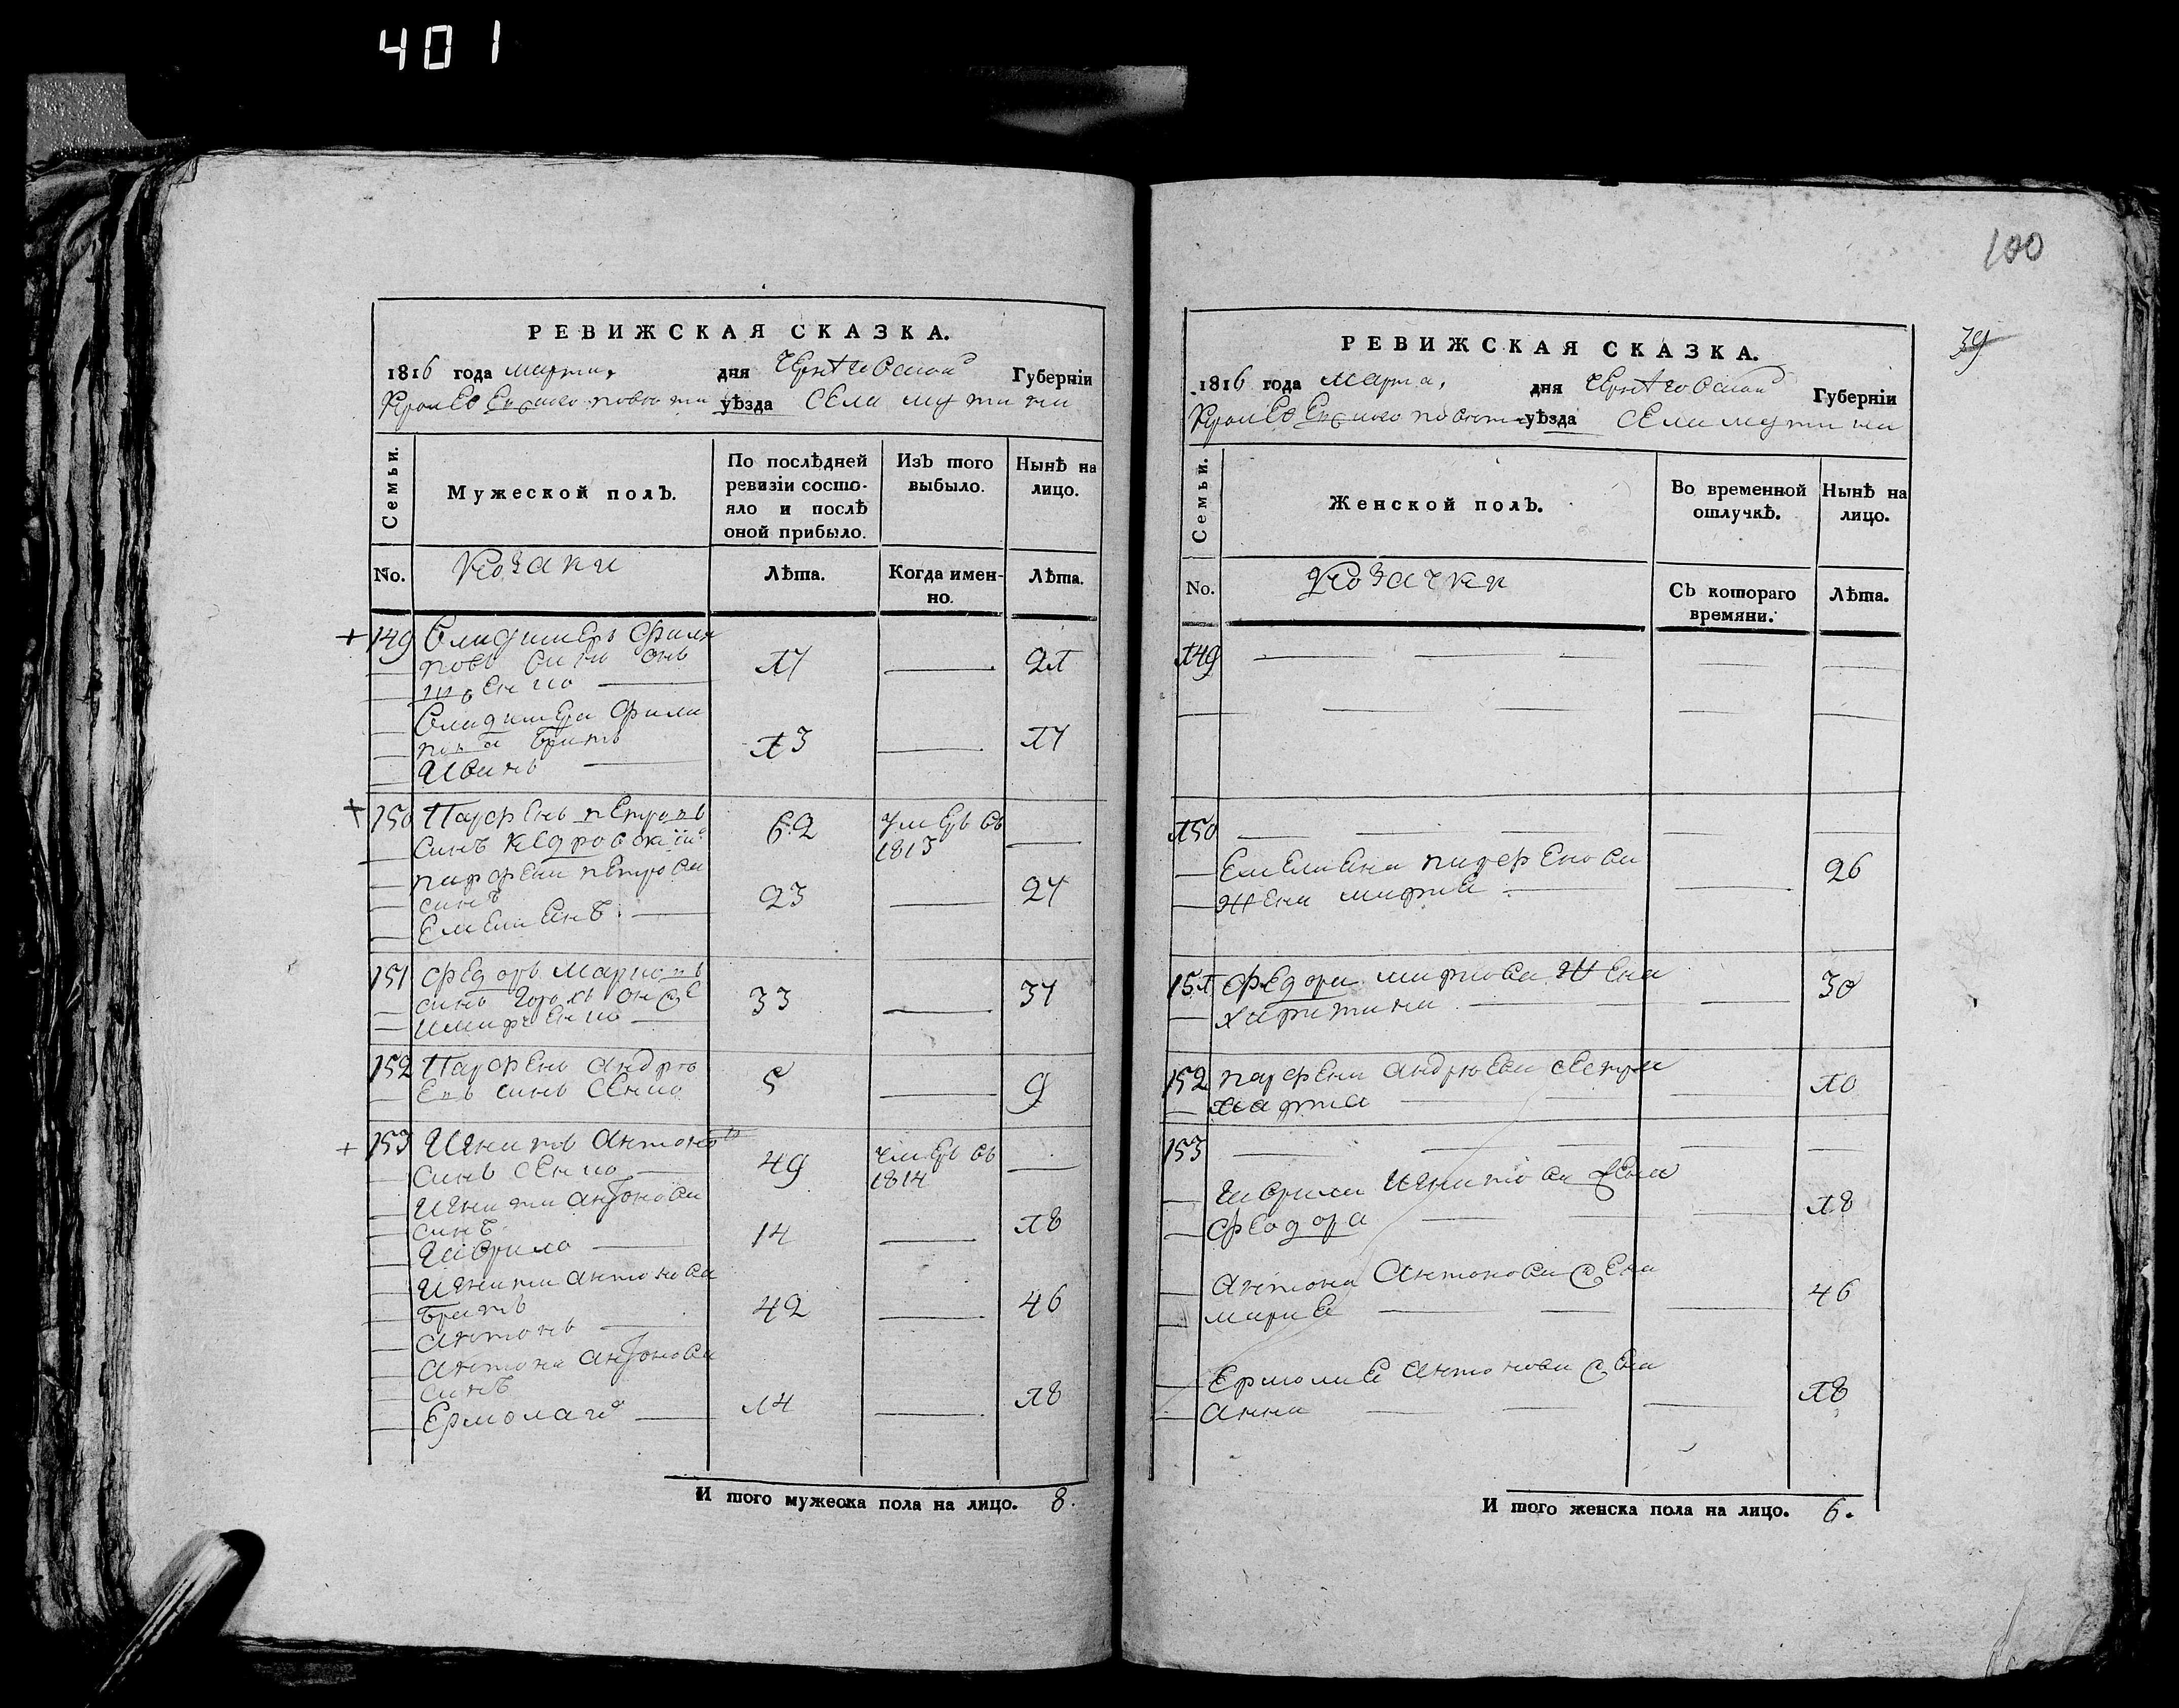 401
100
39
РЕВИЖСКАЯ СКАЗКА.
1816 года марта, дня Черниговской Губерніи
Кролевецкого повета уѣзда села мутина
Семьи.
Мужеской полъ.
По послѣдней ревизіи состояло и послѣ оной прибыло.
Изъ того выбыло.
Нынѣ на лицо.
No.
Козаки
Лѣта.
Когда именно.
Лѣта.
149 Владимеръ Фили
повъ синъ
17 21
Владимера Фили
пова братъ
Иванъ 13 17
150 Парфенъ петровъ
синъ 62 умеръ въ
1813
парфена петрова
синъ
Емельянъ 23 27
151 Федоръ Марковъ
синъ 33 37
152 Парфенъ андре
евъ синъ Сенко 5 9
153 Игнатъ антоновъ
синъ Сенко 49 умеръ въ
1814
Игната антонова
синъ
Гаврило 14 18
Игната антонова
братъ
антонъ 42 46
антона антонова
синъ
Ермолай 14 18
И того мужеска пола на лицо. 8.
РЕВИЖСКАЯ СКАЗКА.
1816 года Марта, дня Черниговской Губерніи
Кролевецкого повета уѣзда села мутина
Семьи.
Женской полъ.
Во временной отлучкѣ.
Нынѣ на лицо.
No.
Козачки
Съ котораго времяни.
Лѣта.
149
150
Емельяна парфенова
жена марфа 26
151 Федора маркова жена
харитина 30
152 парфена андреева сестра
марфа 10
153
Гаврила игнатова жена
Феодора 18
антона антонова жена
мариа 46
Ермолая антонова жена
анна 18
И того женска пола на лицо. 6.